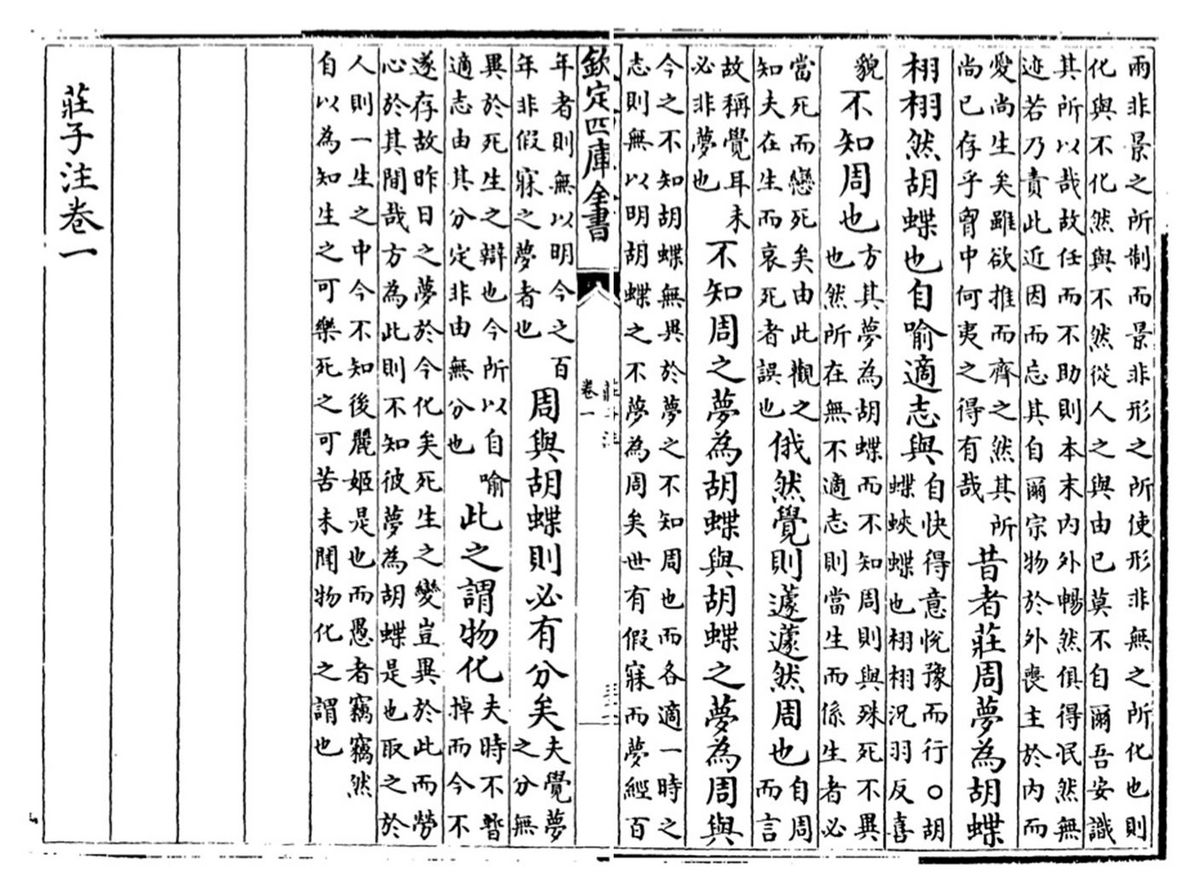 雨非景之所制而景非形之所使形非無之所化也則
化與不化然與不然從人之與由已莫不自爾吾安識
其所以哉故任而不助則本末内外暢然俱得泯然無
迹若乃責此近因而忘其自爾宗物於外喪主於内而
愛尚生矣雖欲推而齊之然其所
尚已存乎胷中何夷之得有哉
昔者莊周夢為胡蝶
栩栩然胡蝶也自喻適志與
自快得意悅豫而行○胡
蝶蛺蝶也栩栩況羽反喜
貌
不知周也
方其夢為胡蝶而不知周則與殊死不異
也然所在無不適志則當生而係生者必
當死而戀死矣由此觀之
知夫在生而哀死者誤也
俄然覺則蘧蘧然周也
自周
而言
故稱覺耳未
必非夢也
不知周之夢為胡蝶與胡蝶之夢為周與
今之不知胡蝶無異於夢之不知周也而各適一時之
志則無以明胡蝶之不夢為周矣世有假寐而夢經百
欽定四庫全書
莊子注
卷一
年者則無以明今之百
年非假寐之夢者也
周與胡蝶則必有分矣
夫覺夢
之分無
異於死生之辯也今所以自喻
適志由其分定非由無分也
此之謂物化
夫時不暫
掉而今不
遂存故昨日之夢於今化矣死生之變豈異於此而勞
心於其間哉方為此則不知彼夢為胡蝶是也取之於
人則一生之中今不知後麗姬是也而愚者竊竊然
自以為知生之可樂死之可苦未聞物化之謂也
莊子注卷一